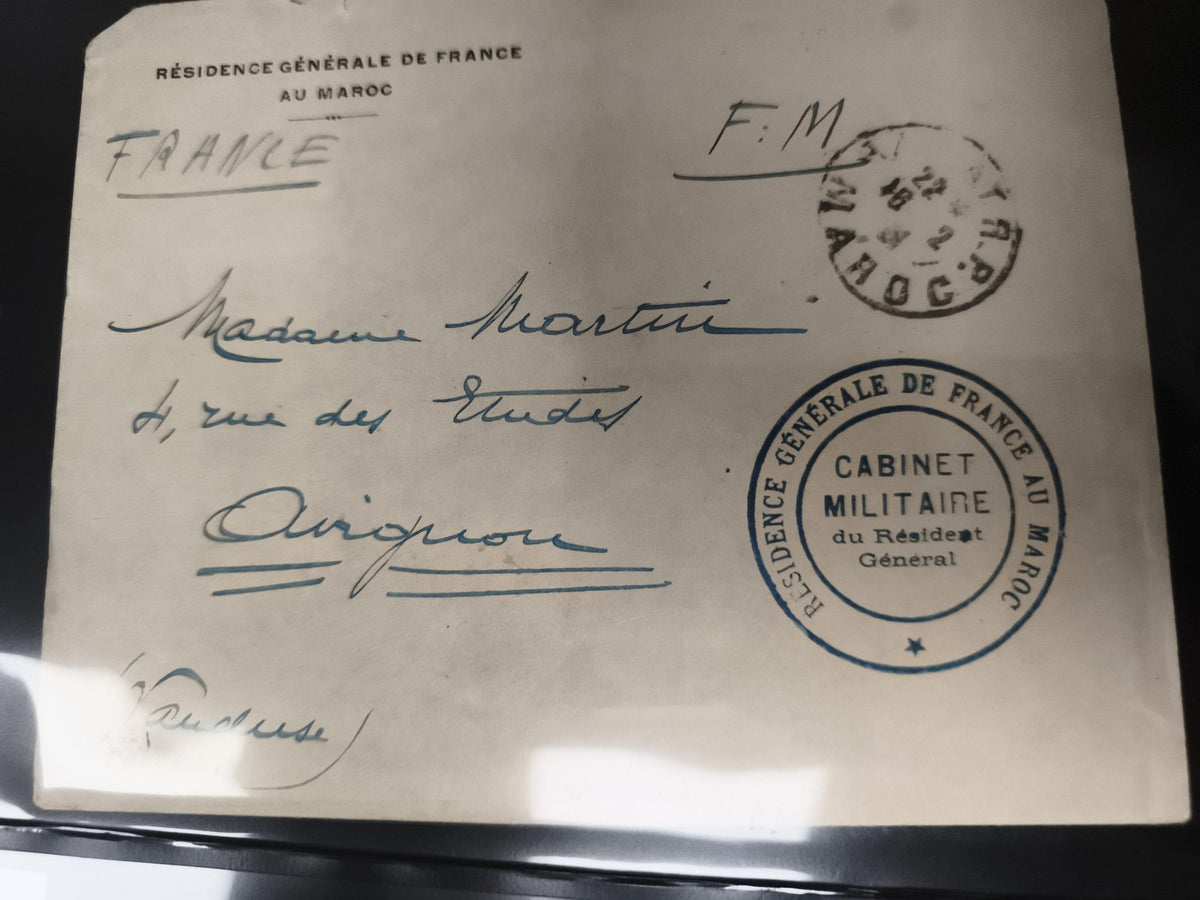 RÉSIDENCE GÉNÉRALE DE FRANCE
AU MAROC
FRANCE
F:M
R.P.
22
18
2
MAROC
Madame Martin
4, rue des Etudes
Avignon
(Vaucluse)
RÉSIDENCE GÉNÉRALE DE FRANCE AU MAROC
CABINET
MILITAIRE
du Résident
Général